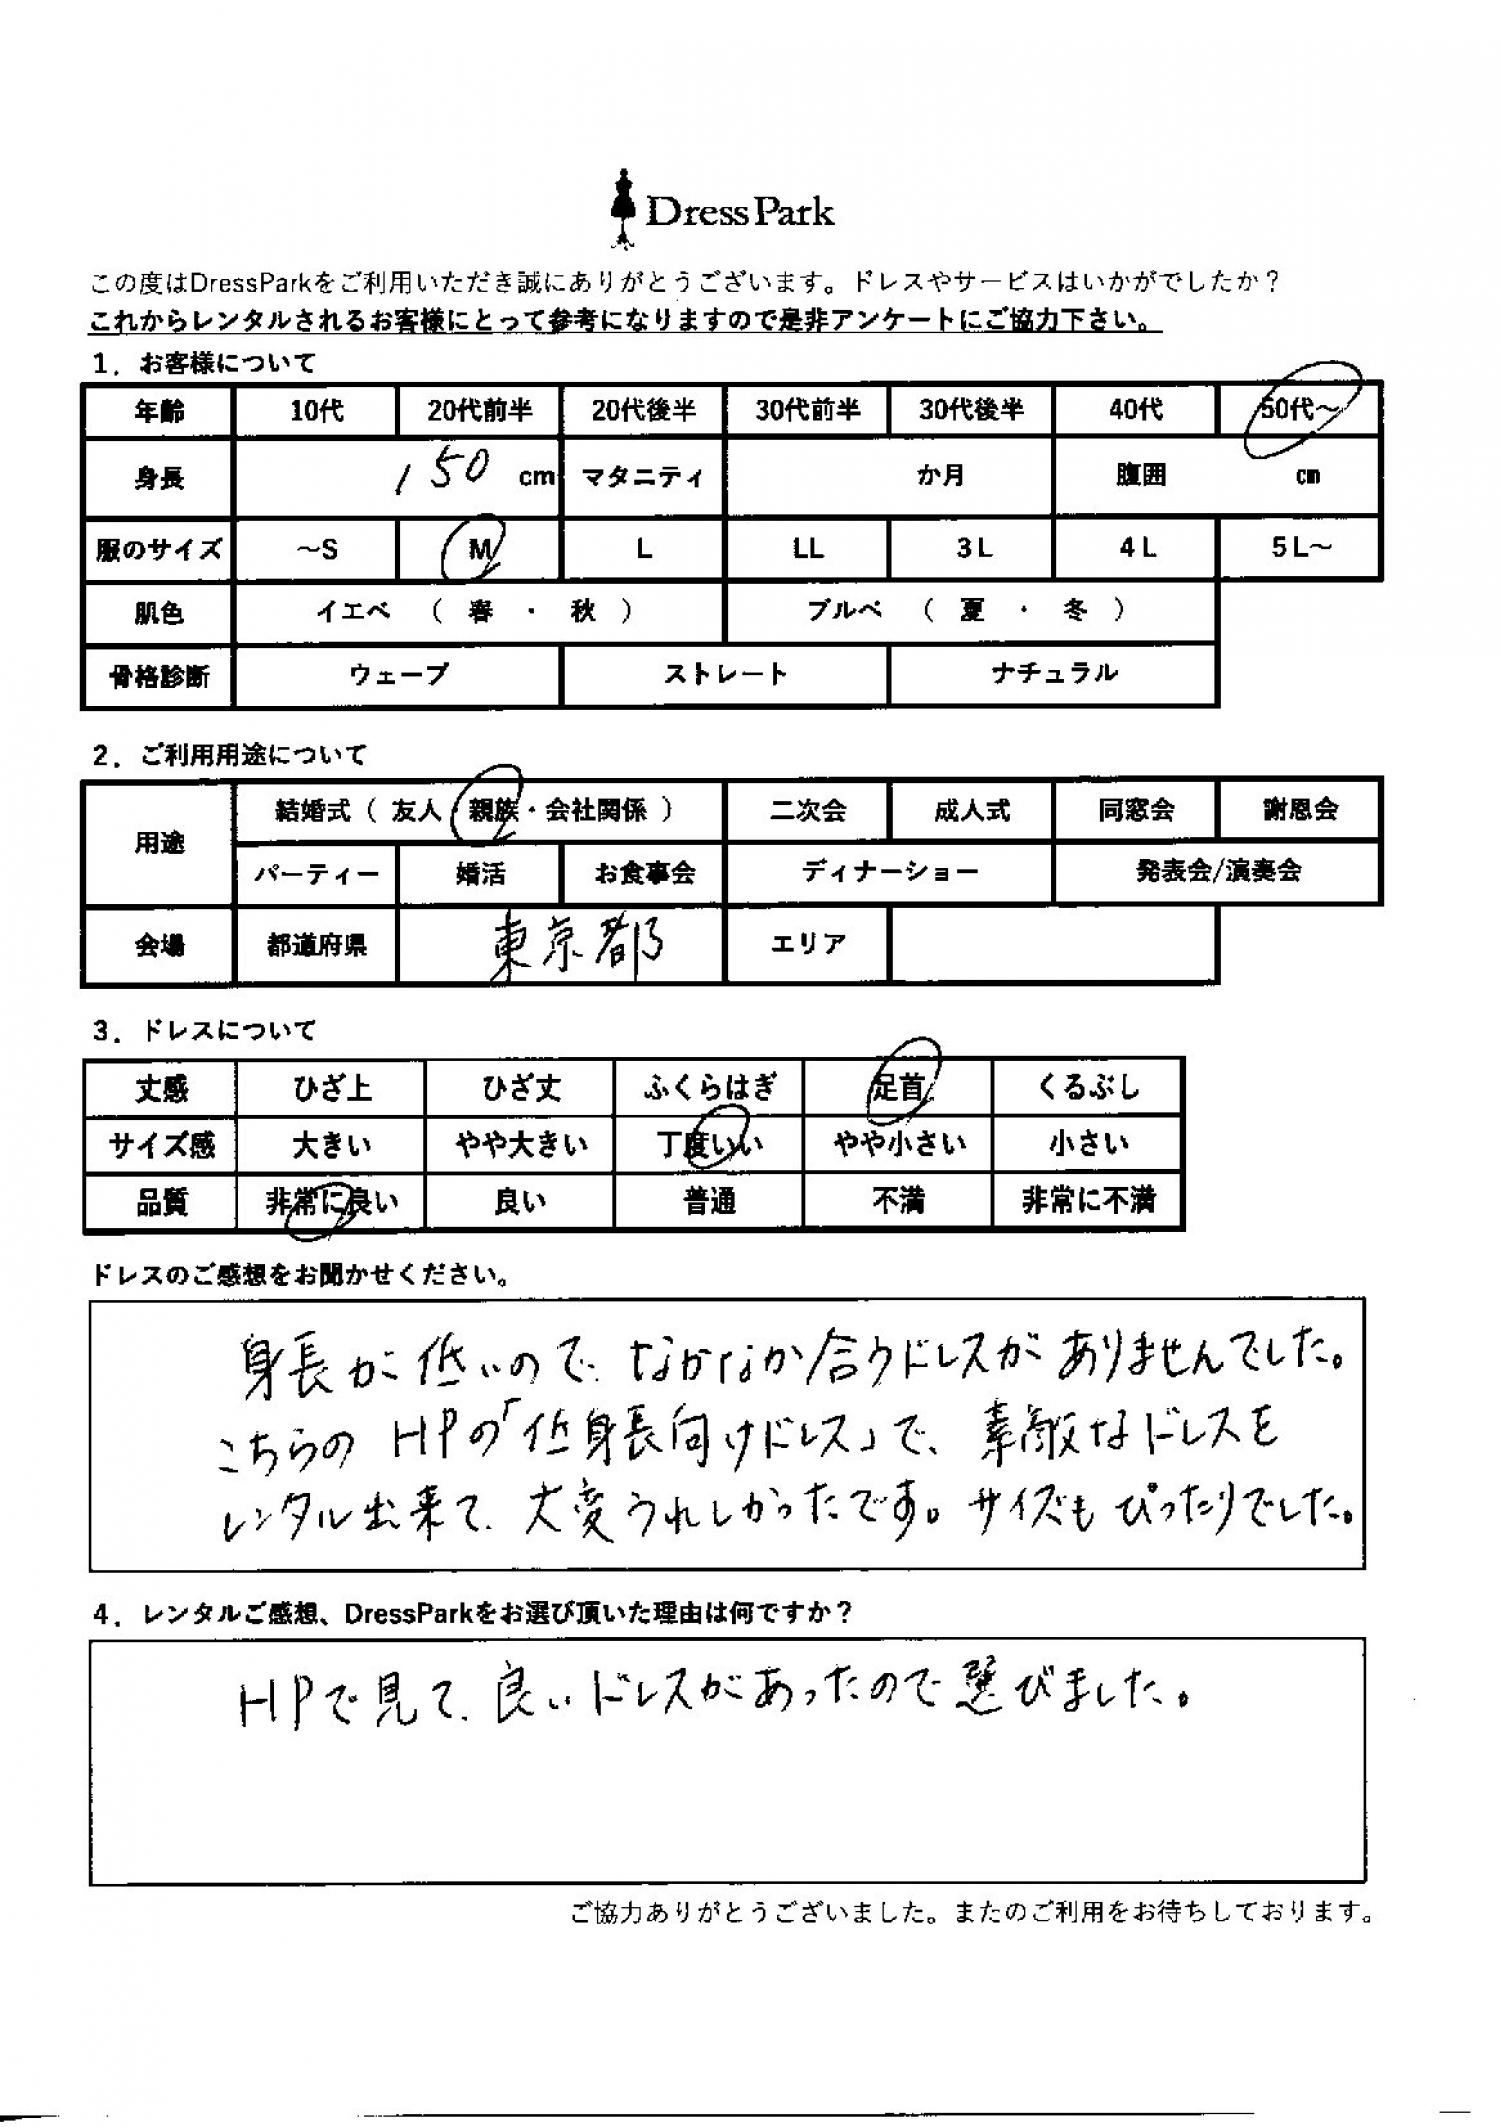 DressPark
この度はDressParkをご利用いただき誠にありがとうございます。ドレスやサービスはいかがでしたか？
これからレンタルされるお客様にとって参考になりますので是非アンケートにご協力下さい。
1．お客様について
年齢 10代 20代前半 20代後半 30代前半 30代後半 40代 50代～
身長 150 cm マタニティ か月 腹囲 cm
服のサイズ ～S M L LL 3L 4L 5L～
肌色 イエベ （ 春 ・ 秋 ） ブルベ （ 夏 ・ 冬 ）
骨格診断 ウェーブ ストレート ナチュラル
2．ご利用用途について
用途 結婚式（ 友人・親族・会社関係 ） 二次会 成人式 同窓会 謝恩会
パーティー 婚活 お食事会 ディナーショー 発表会/演奏会
会場 都道府県 東京都 エリア
3．ドレスについて
丈感 ひざ上 ひざ丈 ふくらはぎ 足首 くるぶし
サイズ感 大きい やや大きい 丁度いい やや小さい 小さい
品質 非常に良い 良い 普通 不満 非常に不満
ドレスのご感想をお聞かせください。
身長が低いので、なかなか合うドレスがありませんでした。
こちらのHPの「低身長向けドレス」で、素敵なドレスを
レンタル出来て、大変うれしかったです。サイズもぴったりでした。
4．レンタルご感想、DressParkをお選び頂いた理由は何ですか？
HPで見て、良いドレスがあったので選びました。
ご協力ありがとうございました。またのご利用をお待ちしております。